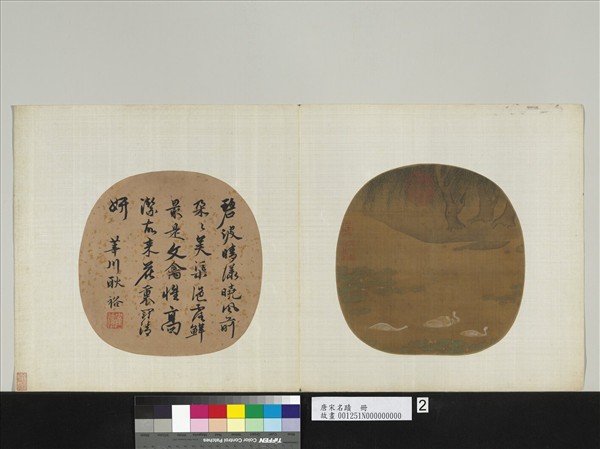 碧波晴漾曉風前
朵〻芙蕖浥露鮮
最是文禽性高
潔故來花裏鬥清
妍 華川耿裕
唐宋名蹟 冊
故畫 001251N000000000
2
TIFFEN Color Control Patches